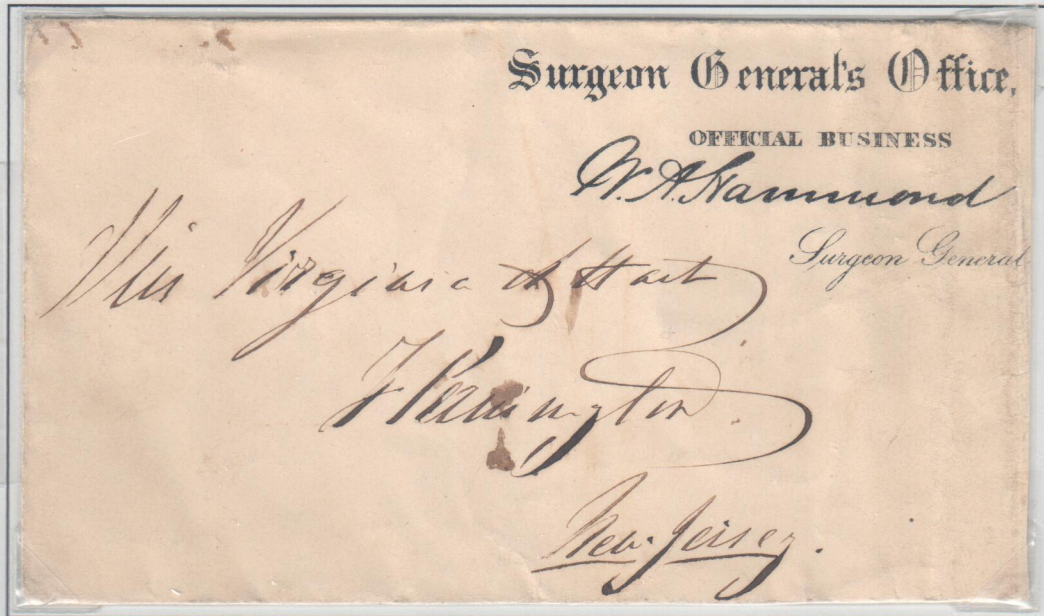 Surgeon General's Office,
OFFICIAL BUSINESS
W. A. Hammond
Surgeon General
Miss Virginia A Hart
Flemington
New Jersey.